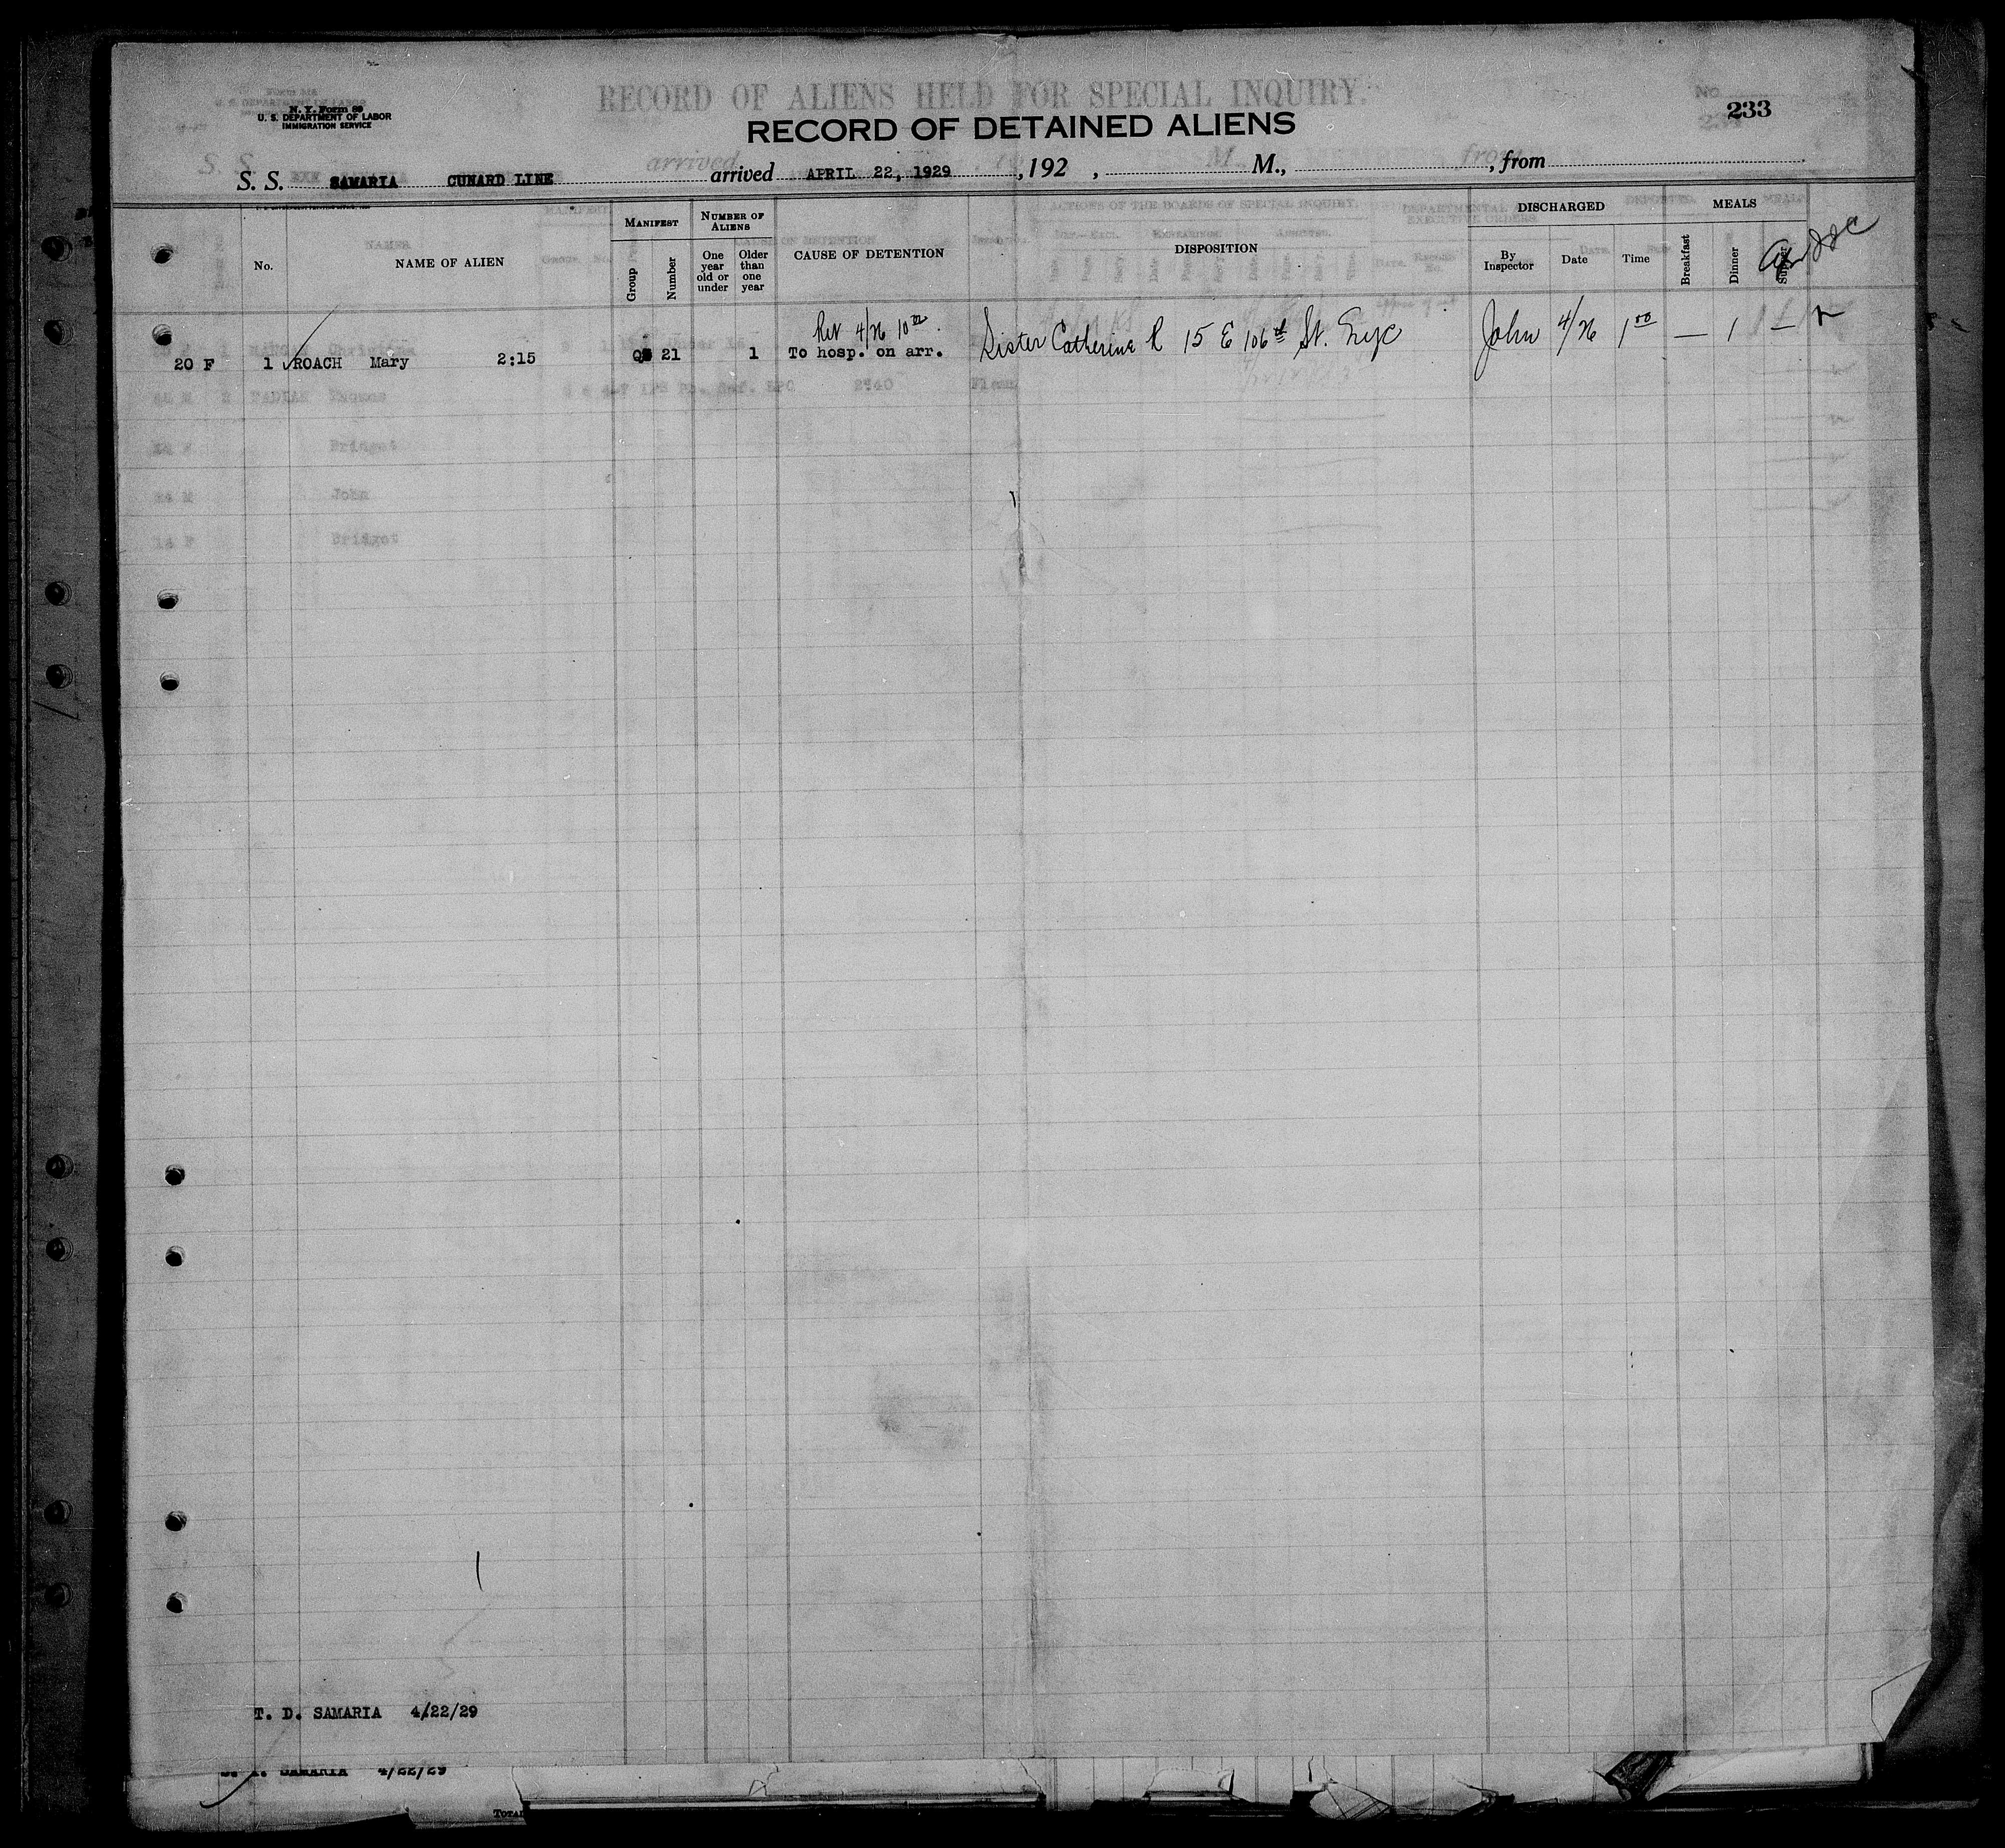 RECORD OF ALIENS HELD FOR SPECIAL INQUIRY.
N. Y. Form 89
U. S. DEPARTMENT OF LABOR
IMMIGRATION SERVICE
233
RECORD OF DETAINED ALIENS
S. S. SAMARIA CUNARD LINE arrived APRIL 22, 1929, 192 , M., , from
MANIFEST NUMBER OF ALIENS DISCHARGED MEALS
No. NAME OF ALIEN Group Number One year old or under Older than one year CAUSE OF DETENTION DISPOSITION By Inspector Date Time Breakfast Dinner Supper
Ret 4/26 10
20 F 1 ROACH Mary 2:15 21 1 To hosp. on arr. Sister Catherine R 15 E 106th St. Nyc John 4/26 1 00 — 1 —
Bridget
John
Bridget
T. D. SAMARIA 4/22/29
SAMARIA 4/22/29
TOTAL